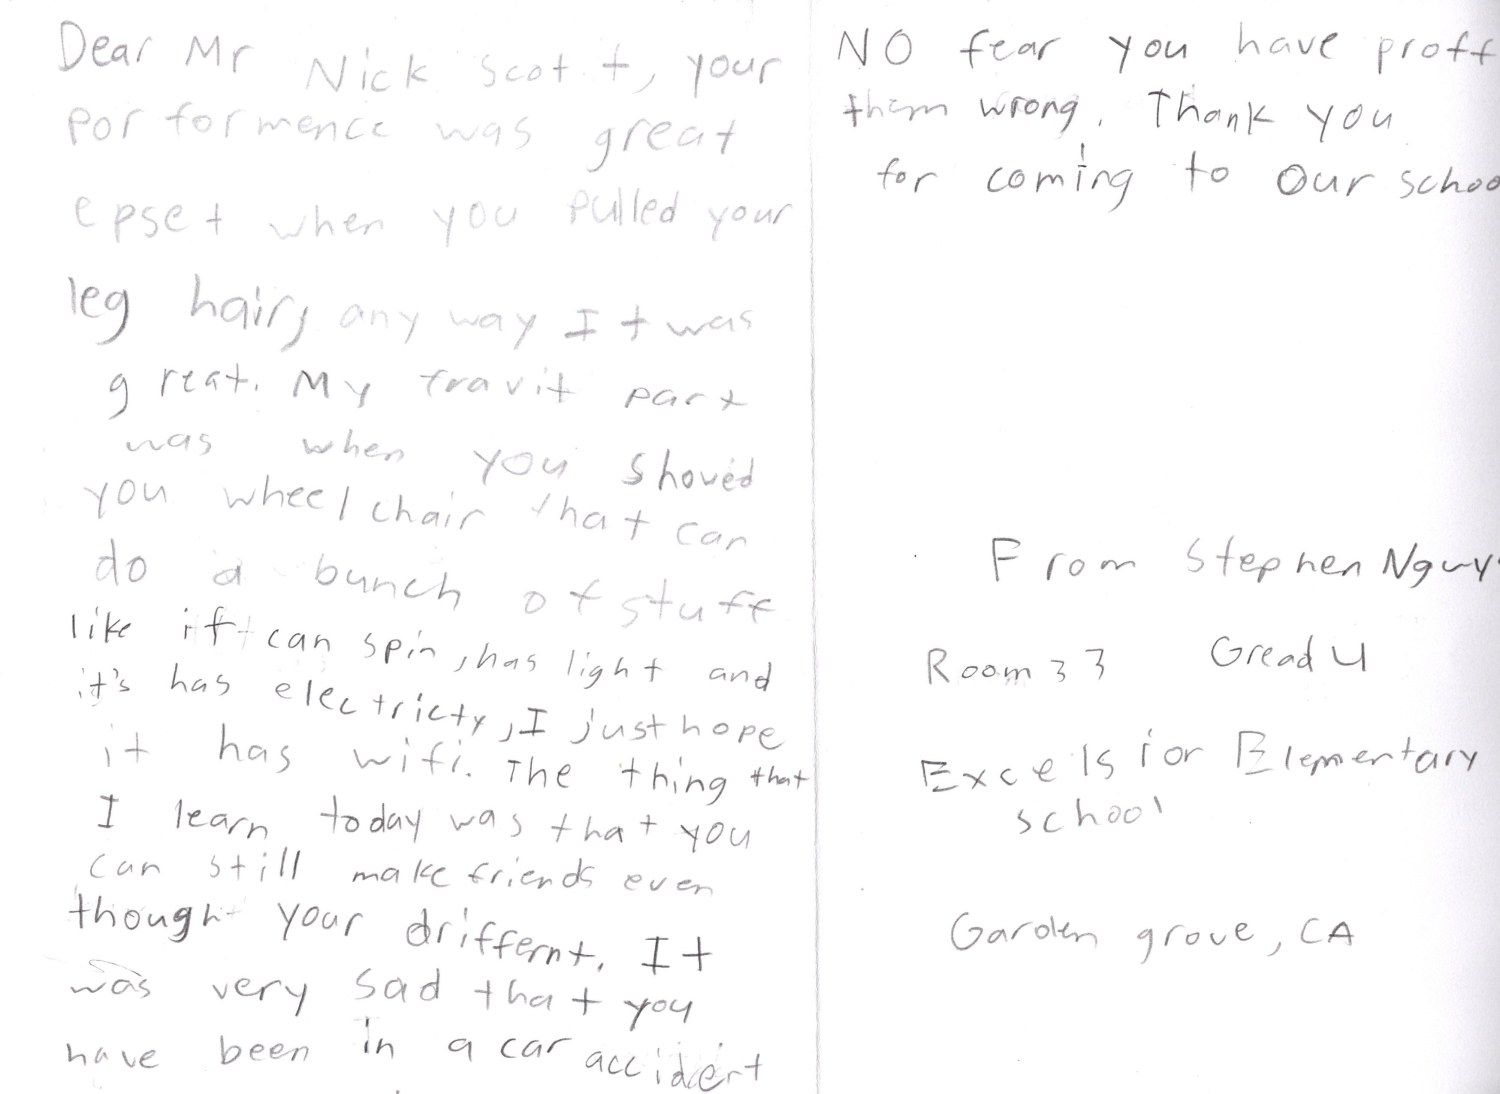 Dear Mr Nick Scott, your
porformence was great
epset when you pulled your
leg hairs any way It was
great. My fravit part
was when you shoved
you wheelchair that can
do a bunch of stuff
like it can spin, has light and
it's has electricty, I just hope
it has wifi. The thing that
I learn today was that you
can still make friends even
though your driffernt. It
was very sad that you
have been in a car accident
NO fear you have proff
them wrong. Thank you
for coming to our schoo
From Stephen Nguy
Room 33 Gread 4
Excelsior Elementary
school
Garden grove, CA